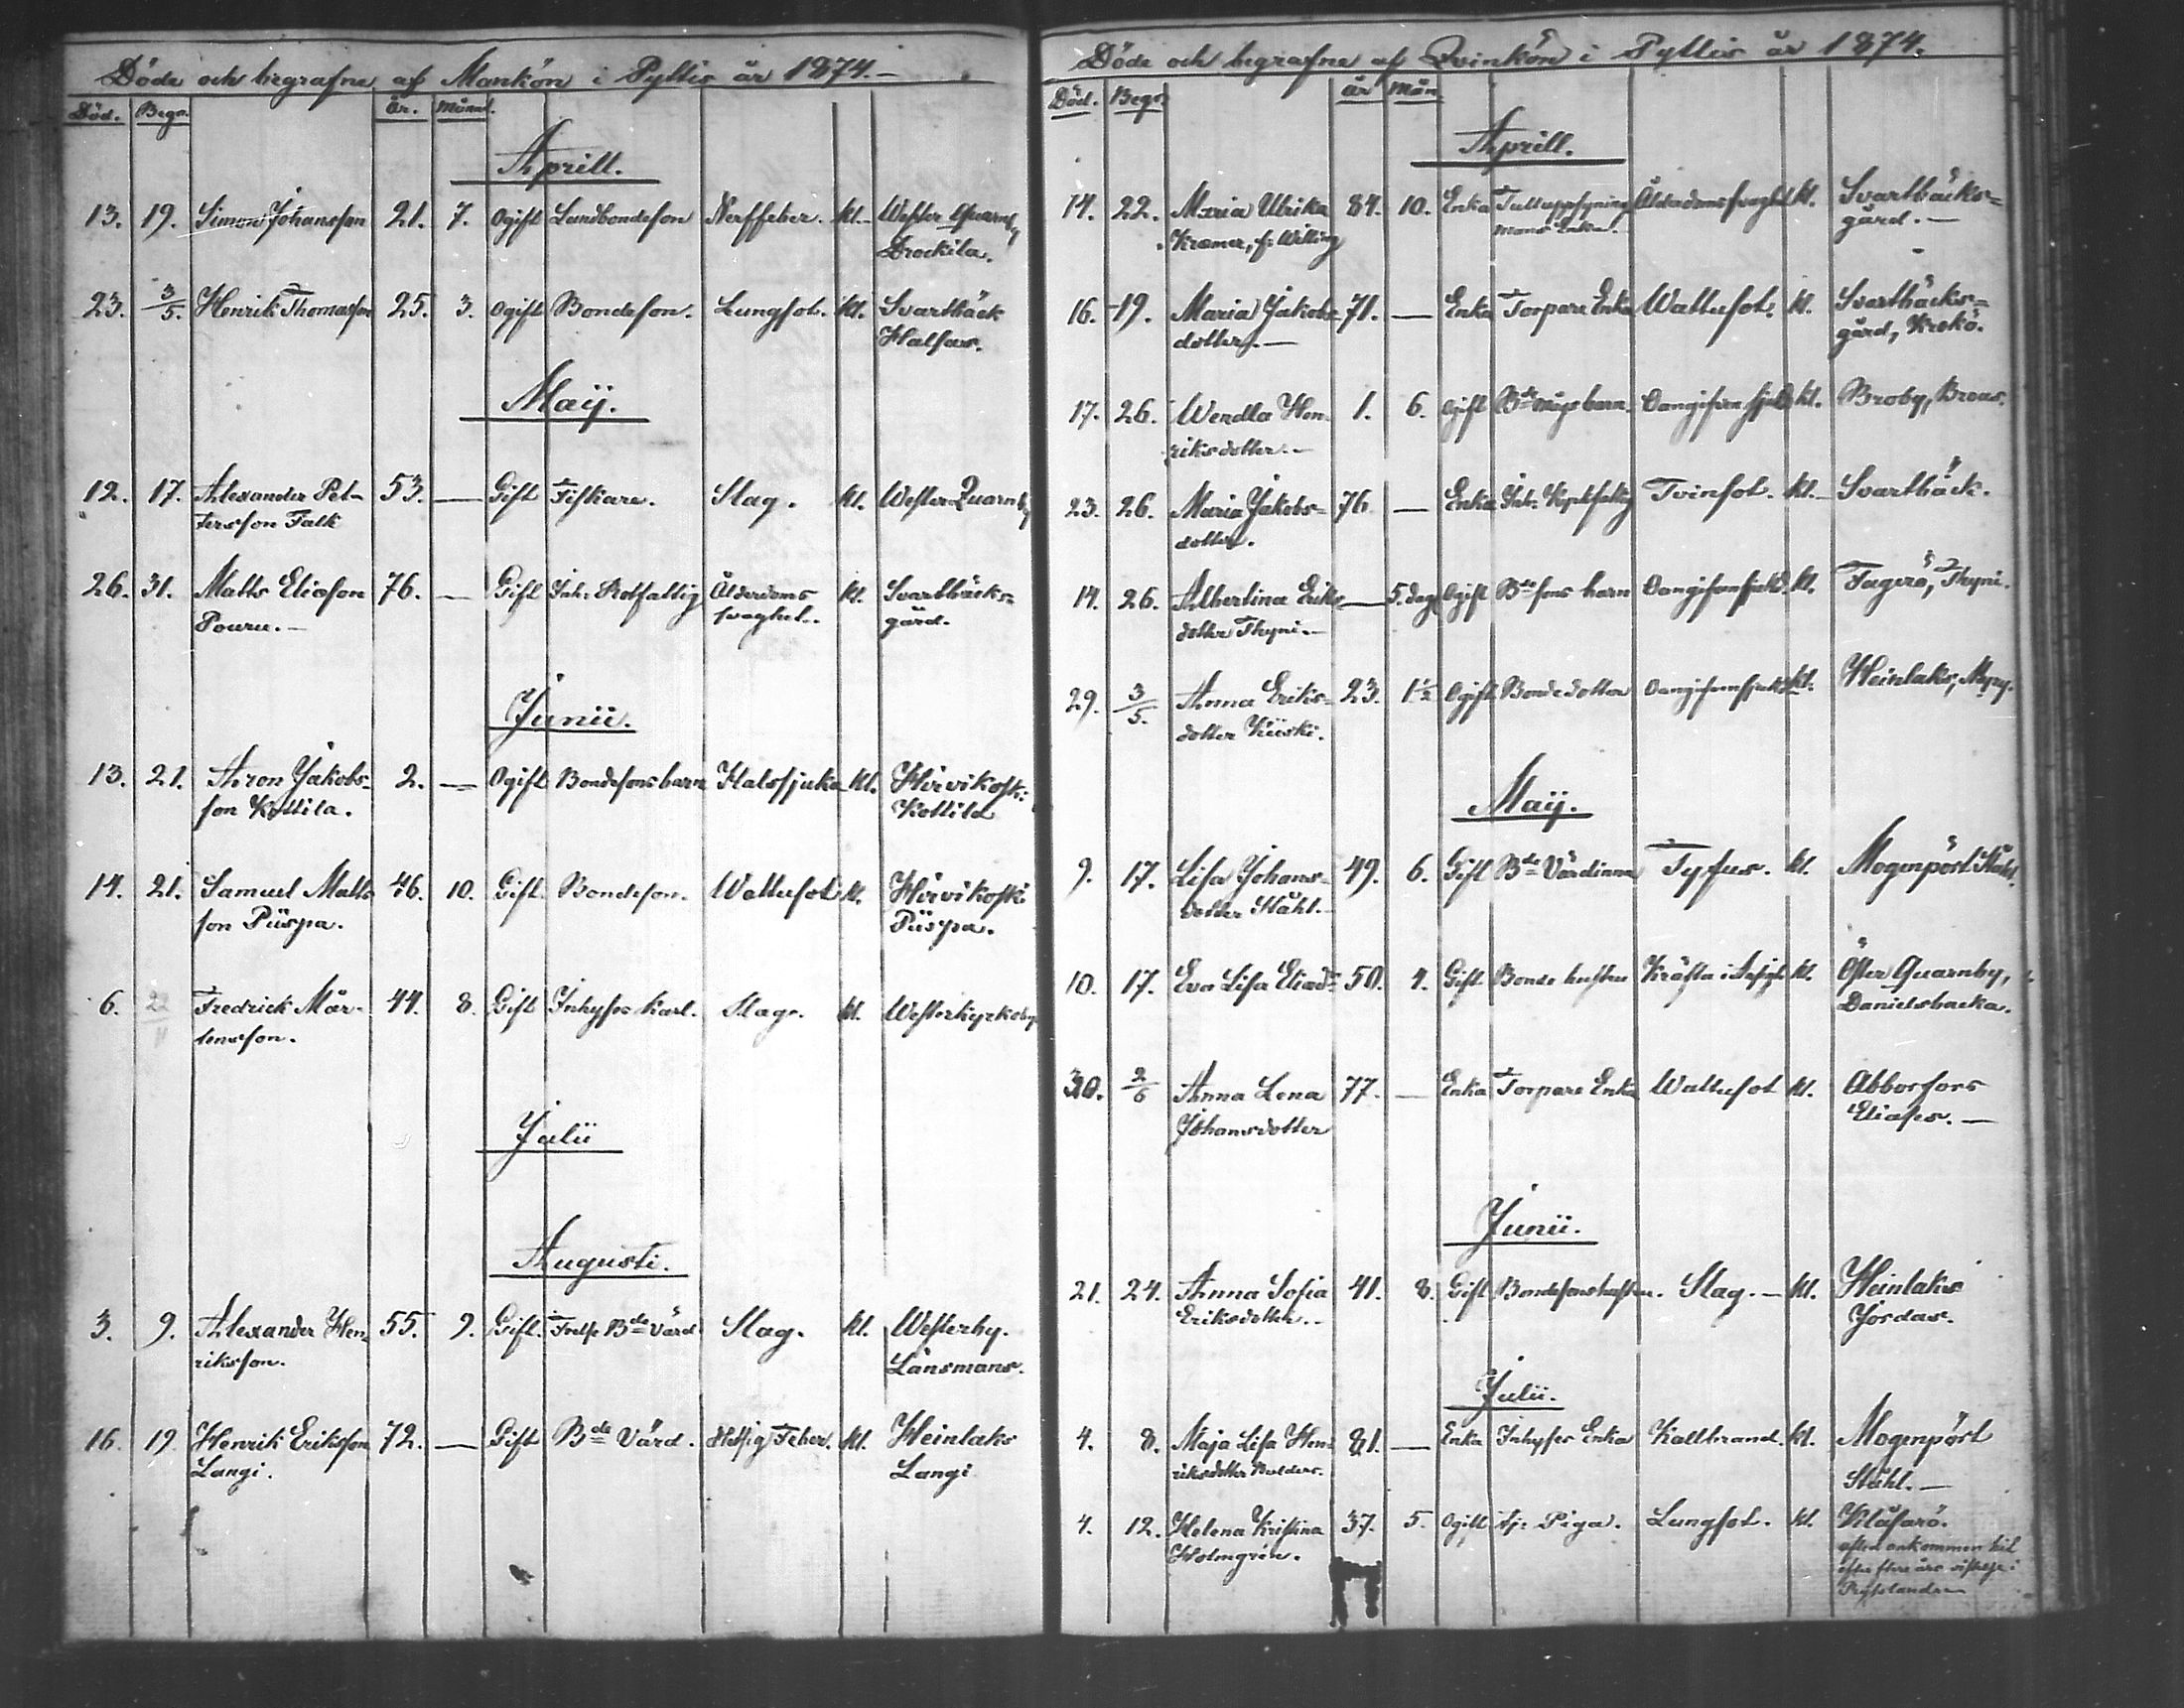 Döde och begrafne af Mankön i Pyttis år 1874.—
Död. Begr. År. Månad.
Aprill.
13. 19. Simon Johansson 21. 7. Ogift Landbondeson Nerffeber. kl. Wester Quarnby
Drockila.
23. 3/5. Henrik Thomasson 25. 3. Ogift Bondeson. Lungsot. kl. Svartbäck
Halfar.
Maÿ.
12. 17. Alexander Pet- 53. — Gift Fiskare. Slag. kl. Wester Quarnby
tersson Falk
26. 31. Matts Eliasson 76. — Gift Inh. Rotfattig Ålderdoms kl. Svartbäcks-
Pouru.— svaghet. gård.
Junii.
13. 21. Aron Jakobs- 2. — Ogift Bondesonsbarn Halssjuka kl. Hirvikoski
son Kottila. Kottila
14. 21. Samuel Matts 46. 10. Gift Bondeson. Wattusot kl. Hirvikoski
son Piispa. Piispa.
6. 22 Fredrick Mår- 44. 8. Gift Inhyses Karl. Slag. kl. Westerkyrkoby
tensson.
Julii
Augusti.
3. 9. Alexander Hen- 55. 9. Gift. Frälse Bde Värd Slag. kl. Westerby.
riksson. Länsmans.
16. 19 Henrik Eriksson 72. — Gift Bde Värd. Hetsig Feber. kl. Heinlaks
Langi. Langi
Döde och begrafne af Qvinkön i Pyttis år 1874.
Död. Begr. år Mån
Aprill.
14. 22. Maria Ulrika 84. 10. Enka Tulluppsynings Ålderdomssvaghet kl. Svartbäcks-
Kramer, f. Willing mans Enka. gård.—
16. 19. Maria Jakobs- 71. — Enka Torpare Enka Wattusot. kl. Svartbäcks-
dotter.— gård, Krokö.
17. 26. Wendla Hen- 1. 6. Ogift Bde mågs barn. Oangifven sjukd. kl. Broby, Broas.
riksdotter.—
23. 26. Maria Jakobs- 76 — Enka Inh. Tvinsot. kl. Svartbäck.
dotter.
14. 26. Albertina Eriks — 5. dag. Ogift Bde sons barn Oangifven sjukd. kl. Fagerö, Thyni.
dotter Thyni.—
29. 3/5. Anna Eriks- 23. 1½ Ogift Bondedotter Oangifven sjukd. kl. Heinlaks, Myry.
dotter Kiiski.
Maÿ.
9. 17. Lisa Johans- 49. 6. Gift Bde Värdinna Tyfus. kl. Mogenpört Ståhl.
dotter Ståhl.
10. 17. Eva Lisa Eliasdr 50. 4. Gift Bonde hustru Kräfta i kl. Öster Quarnby,
Danielsbacka.
30. 2/6 Anna Lena 77. — Enka Torpare Enka Wattusot kl. Abborfors
Johansdotter Eliases.—
Junii.
21. 24. Anna Sofia 41. 8. Gift Bondesonshustru. Slag.— kl. Heinlaks
Eriksdotter.. Jordas.
Julii.
4. 8. Maja Lisa Hen- 81. — Enka Inhyses Enka Kallbrand. kl. Mogenpört
riksdotter Ståhl.—
4. 12. Helena Kristina 37. 5. Ogift tj: Piga. Lungsot. kl. Klåsarö.
Holmgrén. ankommen hit
efter flere års vistelse i